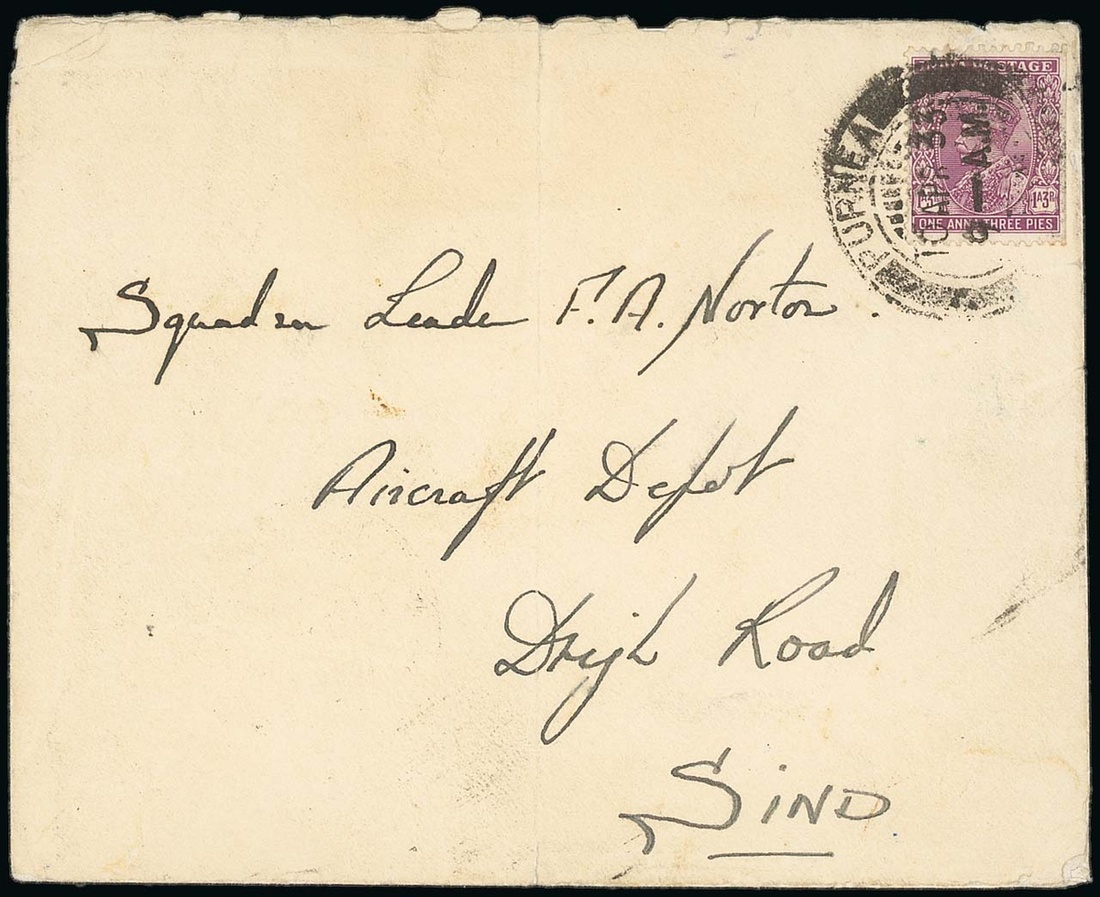 POSTAGE
1A3P
ONE ANNA THREE PIES
PURNEA
APR 33
AM
Squadron Leader F. A. Norton.
Aircraft Depot
Drigh Road
SIND